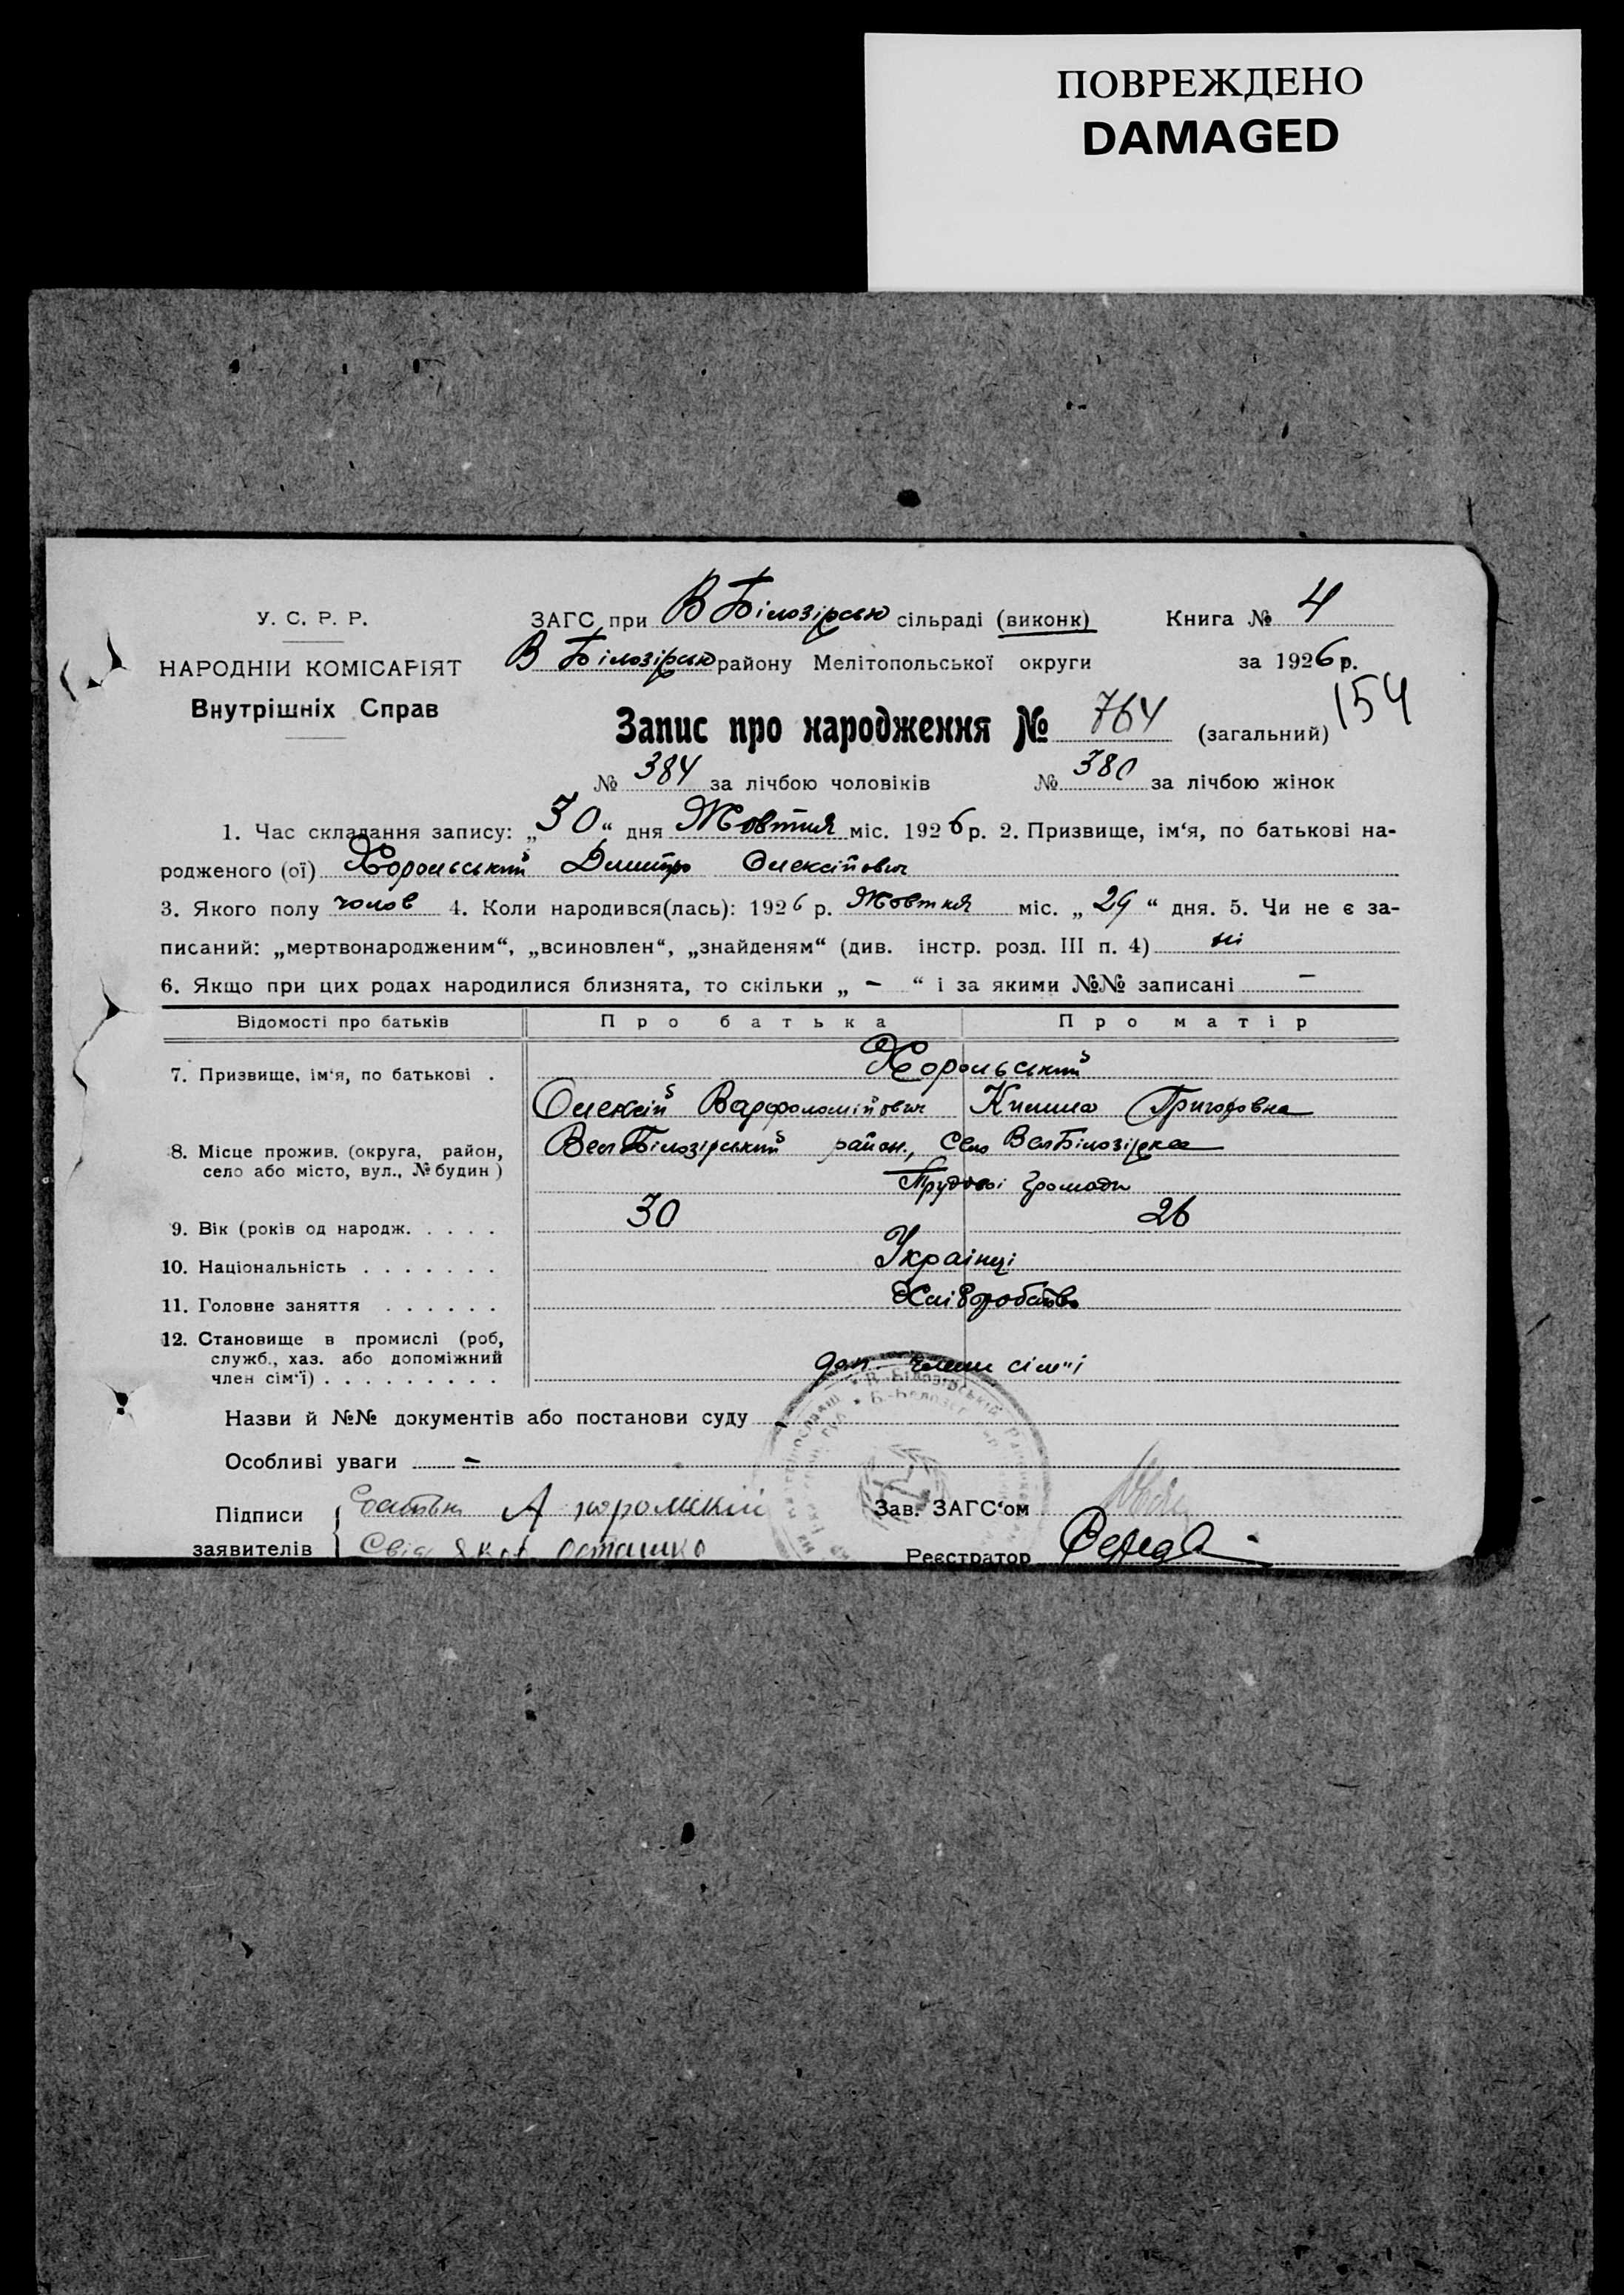 ПОВРЕЖДЕНО
DAMAGED
У. С. Р. Р.
НАРОДНІЙ КОМІСАРІЯТ
Внутрішніх Справ
ЗАГС при В Білозірсью сільраді (виконк)
Книга № 4
В Білозірсью району Мелітопольської округи
за 1926 р.
154
Запис про народження № 764 (загальний)
№ 384 за лічбою чоловіків № 380 за лічбою жінок
1. Час складання запису: „30“ дня Жовтня міс. 1926 р. 2. Призвище, ім‘я, по батькові на-
родженого (ої) Хорольський Дмитро Олексійович
3. Якого полу чолов 4. Коли народився(лась): 1926 р. Жовтня міс. „29“ дня. 5. Чи не є за-
писаний: „мертвонародженим“, „всиновлен“, „знайденям“ (див. інстр. розд. III п. 4) ні
6. Якщо при цих родах народилися близнята, то скільки „ – “ і за якими №№ записані –
Відомості про батьків Про батька Про матір
7. Призвище, ім‘я, по батькові . Хорольський
Олексій Варфоломійович Килина Григоровна
8. Місце прожив. (округа, район, село або місто, вул., № будин) ВелБілозірський район., село ВелБілозірка
Трудові громади
9. Вік (років од народж. . . . . 30 26
10. Національність . . . . . . . Українці
11. Головне заняття . . . . . . Хліборобство
12. Становище в промислі (роб, служб., хаз. або допоміжний член сім‘ї) . . . . . . . . . доп. члени сім"і
Назви й №№ документів або постанови суду –
Особливі уваги –
Підписи заявителів батько А хоролский
Осташко
Зав. ЗАГС‘ом
Реєстратор